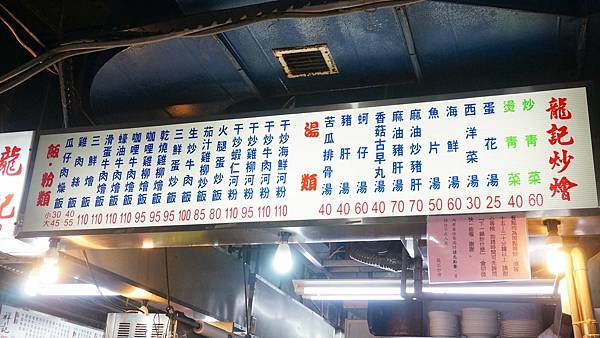 龍記
飯.粉類
小 大
瓜仔肉燥飯 30 45
雞肉絲飯 40 55
三鮮燴飯 110
滑蛋牛肉燴飯 110
蠔油牛肉燴飯 110
咖哩牛肉燴飯 110
咖哩雞柳燴飯 95
乾燒雞柳燴飯 95
三鮮蛋炒飯 95
生炒牛肉飯 100
茄汁雞柳炒飯 85
火腿蛋炒飯 80
干炒蝦仁河粉 110
干炒雞柳河粉 95
干炒牛肉河粉 110
干炒海鮮河粉 110
湯類
苦瓜排骨湯 40
豬肝湯 40
蚵仔湯 60
香菇古早丸湯 40
麻油豬肝湯 70
麻油炒豬肝 70
魚片湯 50
海鮮湯 60
西洋菜湯 30
蛋花湯 25
燙青菜 40
炒青菜 60
龍記炒燴